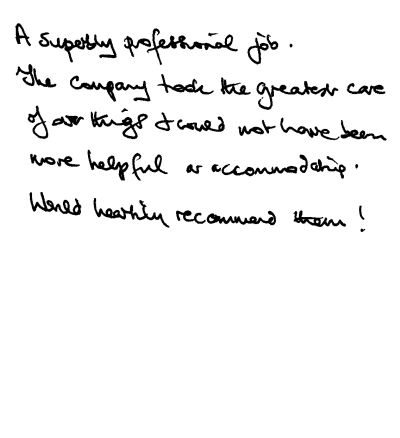 A superbly professional job.
The company took the greatest care
of our things & could not have been
more helpful or accommodating.
Would heartily recommend them!